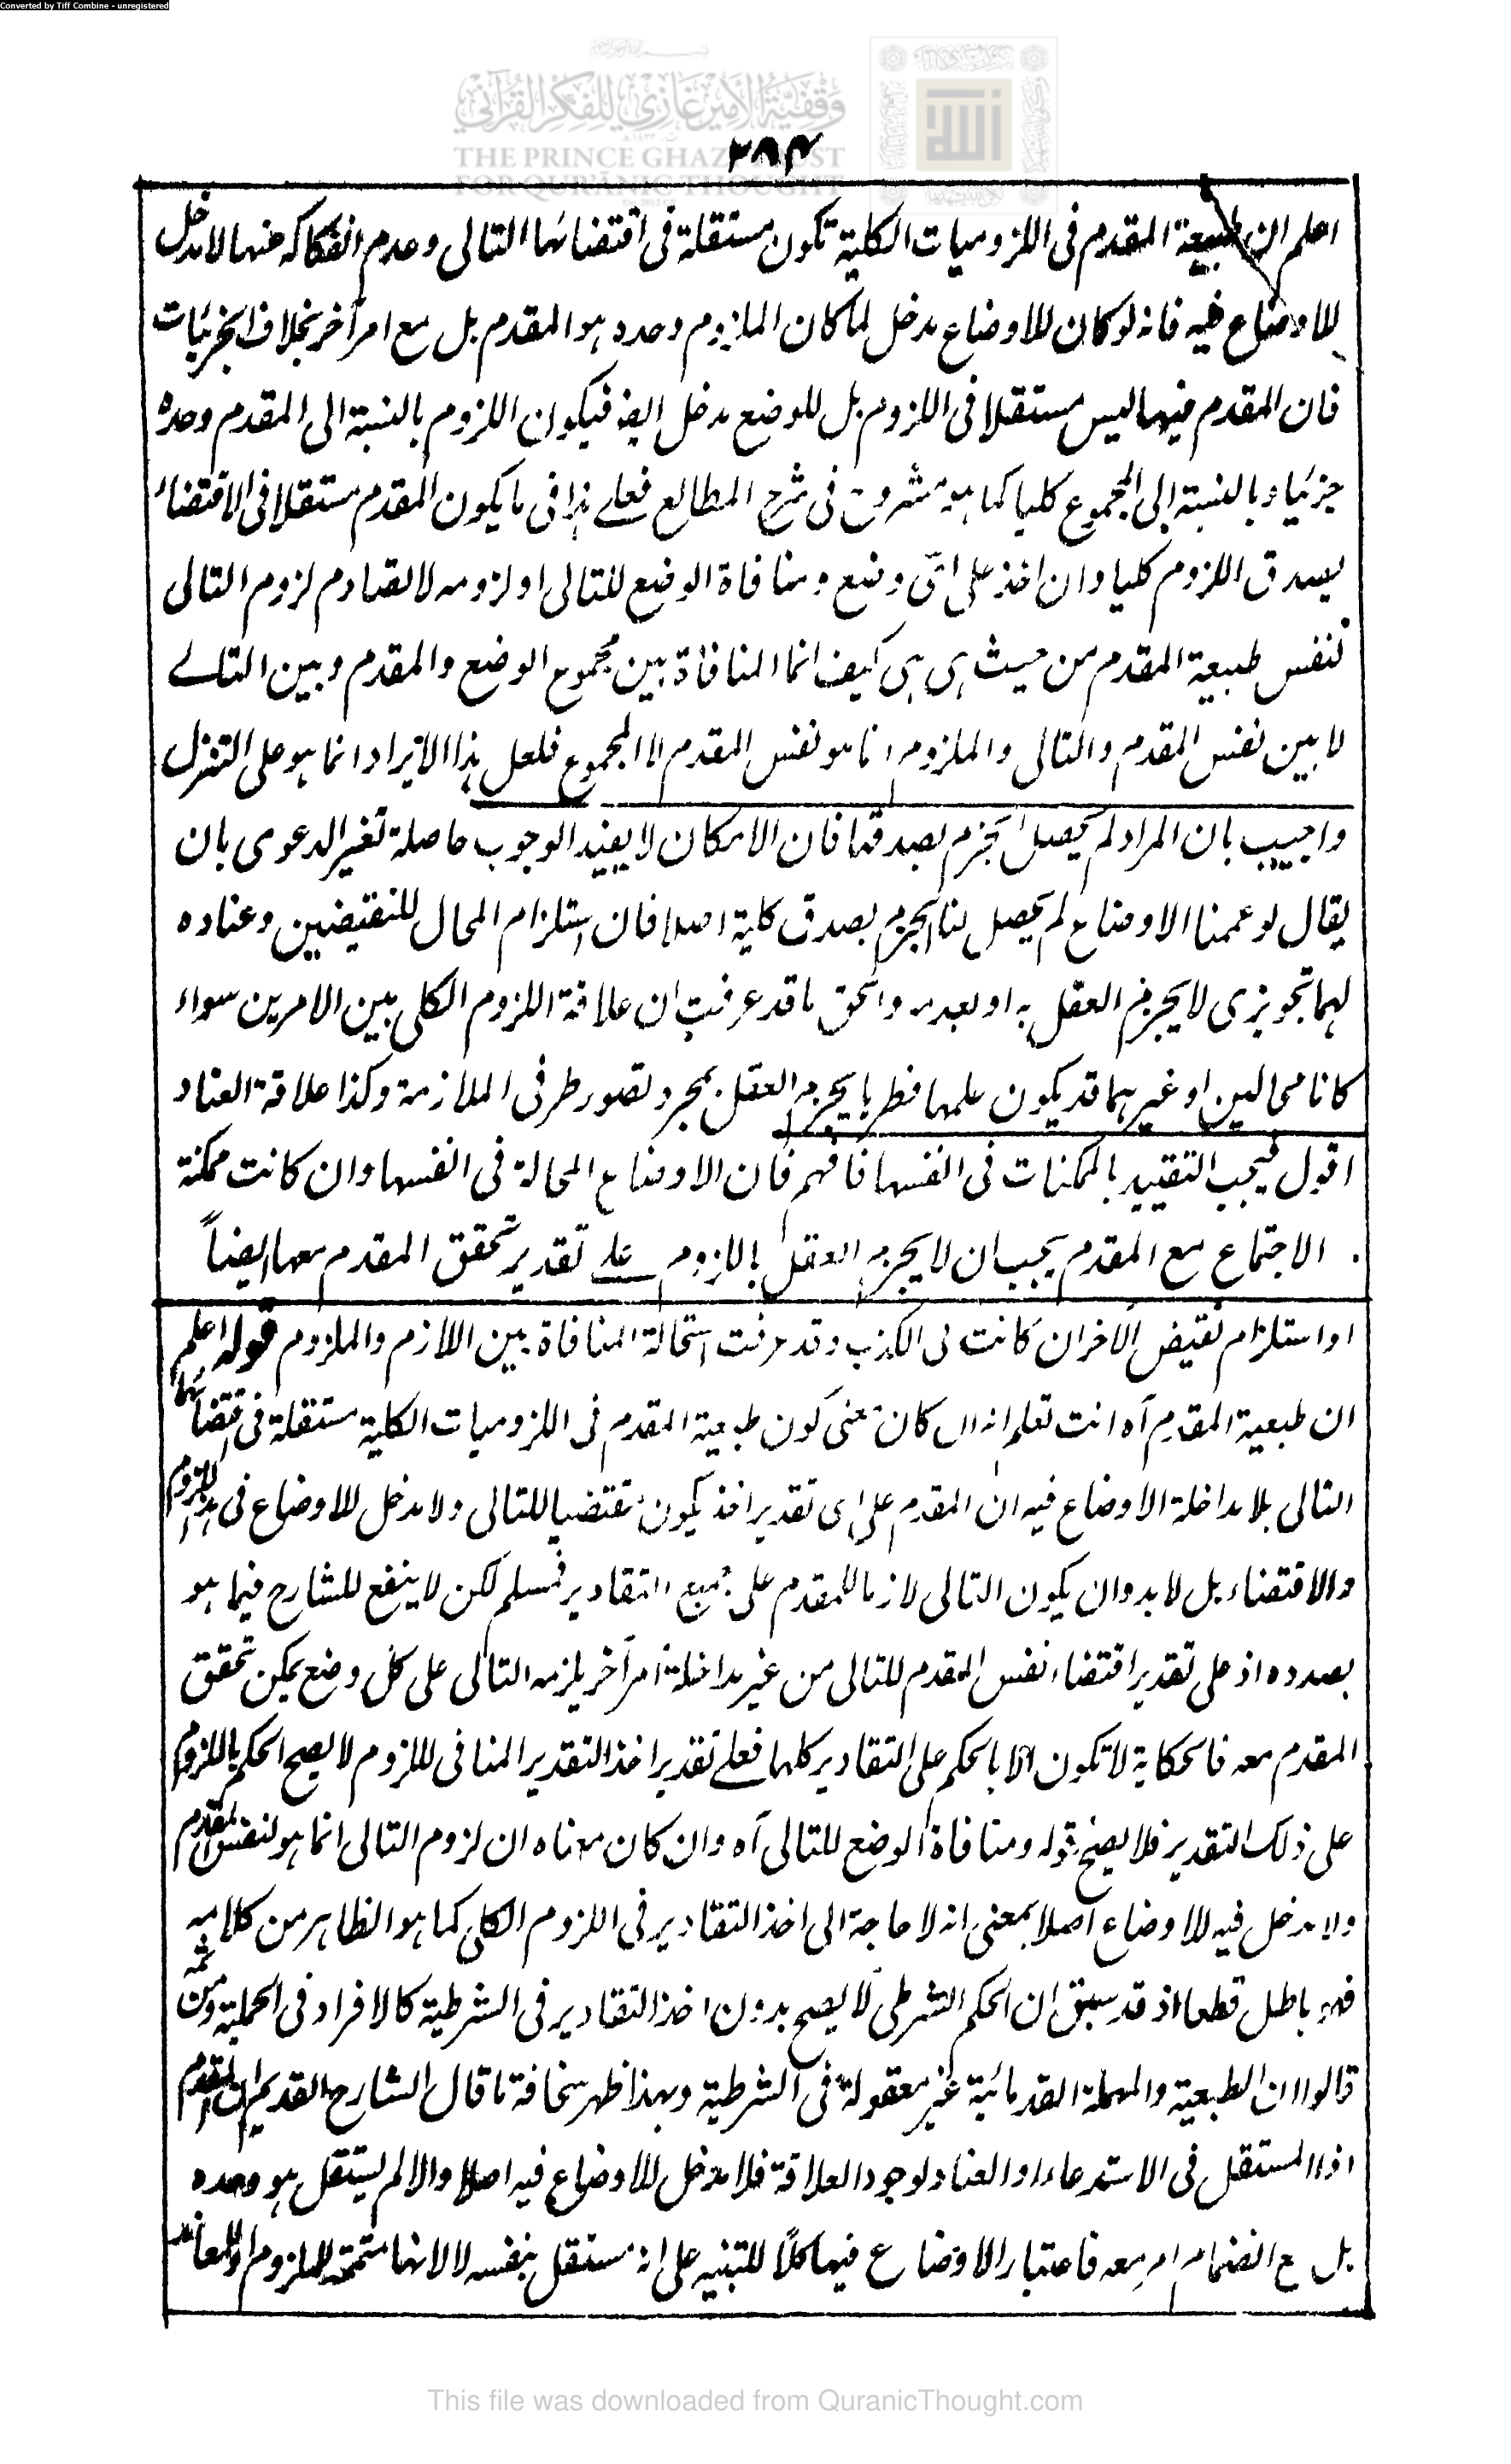 Converted by Tiff Combine - unregistered
وقفية الأمير غازي للفكر القرآني
THE PRINCE GHAZI TRUST
FOR QUR'ĀNIC THOUGHT
٢٨٤
اعلم ان طبيعة المقدم فى اللزوميات الكلية تكون مستقلة فى اقتضائها التالى وعدم انفكاكه عنها لا مدخل
للاوضاع فيه فانه لو كان للاوضاع مدخل لما كان الملزوم وحده هو المقدم بل مع امر آخر بخلاف الجزئيات
فان المقدم فيها ليس مستقلا فى اللزوم بل للوضع مدخل ايضا فيكون اللزوم بالنسبة الى المقدم وحده
جزئيا وبالنسبة الى المجموع كليا كما هو مشروح فى شرح المطالع فعلى هذا فى ما يكون المقدم مستقلا فى الاقتضاء
يصدق اللزوم كليا وان اخذ على اى وضع ومنافاة الوضع للتالى او لزومه لا تصادم لزوم التالى
لنفس طبيعة المقدم من حيث هى هى كيف انما المنافاة بين مجموع الوضع والمقدم وبين التالى
لا بين نفس المقدم والتالى والملزوم انما هو نفس المقدم لا المجموع فلعل هذا الايراد انما هو على التنزل
واجيب بان المراد لم يحصل الجزم بصدقها فان الامكان لا يفيد الوجوب حاصله تغير الدعوى بان
يقال لو عممنا الاوضاع لم يحصل لنا الجزم بصدق كلية اصلا فان استلزام المحال للنقيضين وعناده
لهما تجويزى لا يجزم العقل به او بعدمه والحق ما قد عرفت ان علاقة اللزوم الكلى بين الامرين سواء
كانا محالين او غيرهما قد يكون علمها فطريا يجزم العقل بمجرد تصور طرفى الملازمة وكذا علاقة العناد
اقول فيجب التقييد بالممكنات فى انفسها فافهم فان الاوضاع المحالة فى انفسها وان كانت ممكنة
الاجتماع مع المقدم يجب ان لا يجزم العقل باللزوم على تقدير تحقق المقدم معها ايضاً
او استلزام نقيض الآخر ان كانت فى الكذب وقد عرفت استحالة المنافاة بين اللازم والملزوم قوله اعلم
ان طبيعة المقدم آه انت تعلم انه ان كان معنى كون طبيعة المقدم فى اللزوميات الكلية مستقلة فى اقتضائها
التالى بلا مداخلة الاوضاع فيه ان المقدم على اى تقدير اخذ يكون مقتضيا للتالى ولا مدخل للاوضاع فى هذا اللزوم
والاقتضاء بل لا بد وان يكون التالى لازما للمقدم على جميع التقادير فمسلم لكن لا ينفع للشارح فيما هو
بصدده اذ على تقدير اقتضاء نفس المقدم للتالى من غير مداخلة امر آخر يلزمه التالى على كل وضع يمكن تحقق
المقدم معه فالحكاية لا تكون الا بالحكم على التقادير كلها فعلى تقدير اخذ التقدير المنافى للزوم لا يصح الحكم باللزوم
على ذلك التقدير فلا يصح قوله ومنافاة الوضع للتالى آه وان كان معناه ان لزوم التالى انما هو لنفس المقدم
ولا مدخل فيه للاوضاع اصلا بمعنى انه لا حاجة الى اخذ التقادير فى اللزوم الكلى كما هو الظاهر من كلامه
فهو باطل قطعا اذ قد سبق ان الحكم الشرطى لا يصح بدون اخذ التقادير فى الشرطية كالافراد فى الحملية ومن ثمه
قالوا ان الطبعية والمهملة القدمائية غير معقولة فى الشرطية وبهذا ظهر سخافة ما قال الشارح القديم ان المقدم
اذا استقل فى الاستدعاء او العناد لوجود العلاقة فلا مدخل للاوضاع فيه اصلا والا لم يستقل هو وحده
بل مع انضمام امر معه فاعتبار الاوضاع فيها كلاً للتنبيه على انه مستقل بنفسه لا لانها متممة للملزوم او المعاند
This file was downloaded from QuranicThought.com